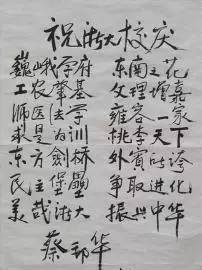 祝浙大校庆
巍峨学府 东南之花
工农肇基 文理增嘉
师医法学 雍容一家
求是为训 桃李天下
东方剑桥 外宾时誇
民主堡垒 争取进化
美哉浙大 振兴中华
蔡邦华